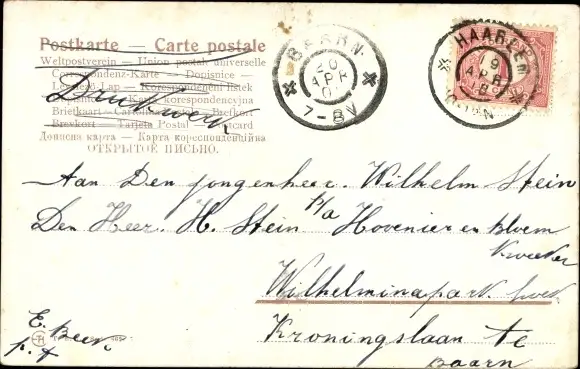 Postkarte — Carte postale
Weltpostverein — Union postale universelle
Correspondenz-Karte — Dopisnice —
Levelező-Lap — Korespondenční listek
Korrespondencyjna
Brevkort — Tarjeta Postal — Postcard
Дописна карта — Карта кореспонденційна
ОТКРЫТОЕ ПИСЬМО.
Drukwerk
BAARN
20
APR
7-8V
HAARLEM
19
APR
Aan Den jongenheer. Wilhelm Stein
Den Heer. H. Stein p/a Hovenier en Bloem
kweeker
Wilhelminapark hoek
Kroningslaan te
Baarn
E. Beek
p. f